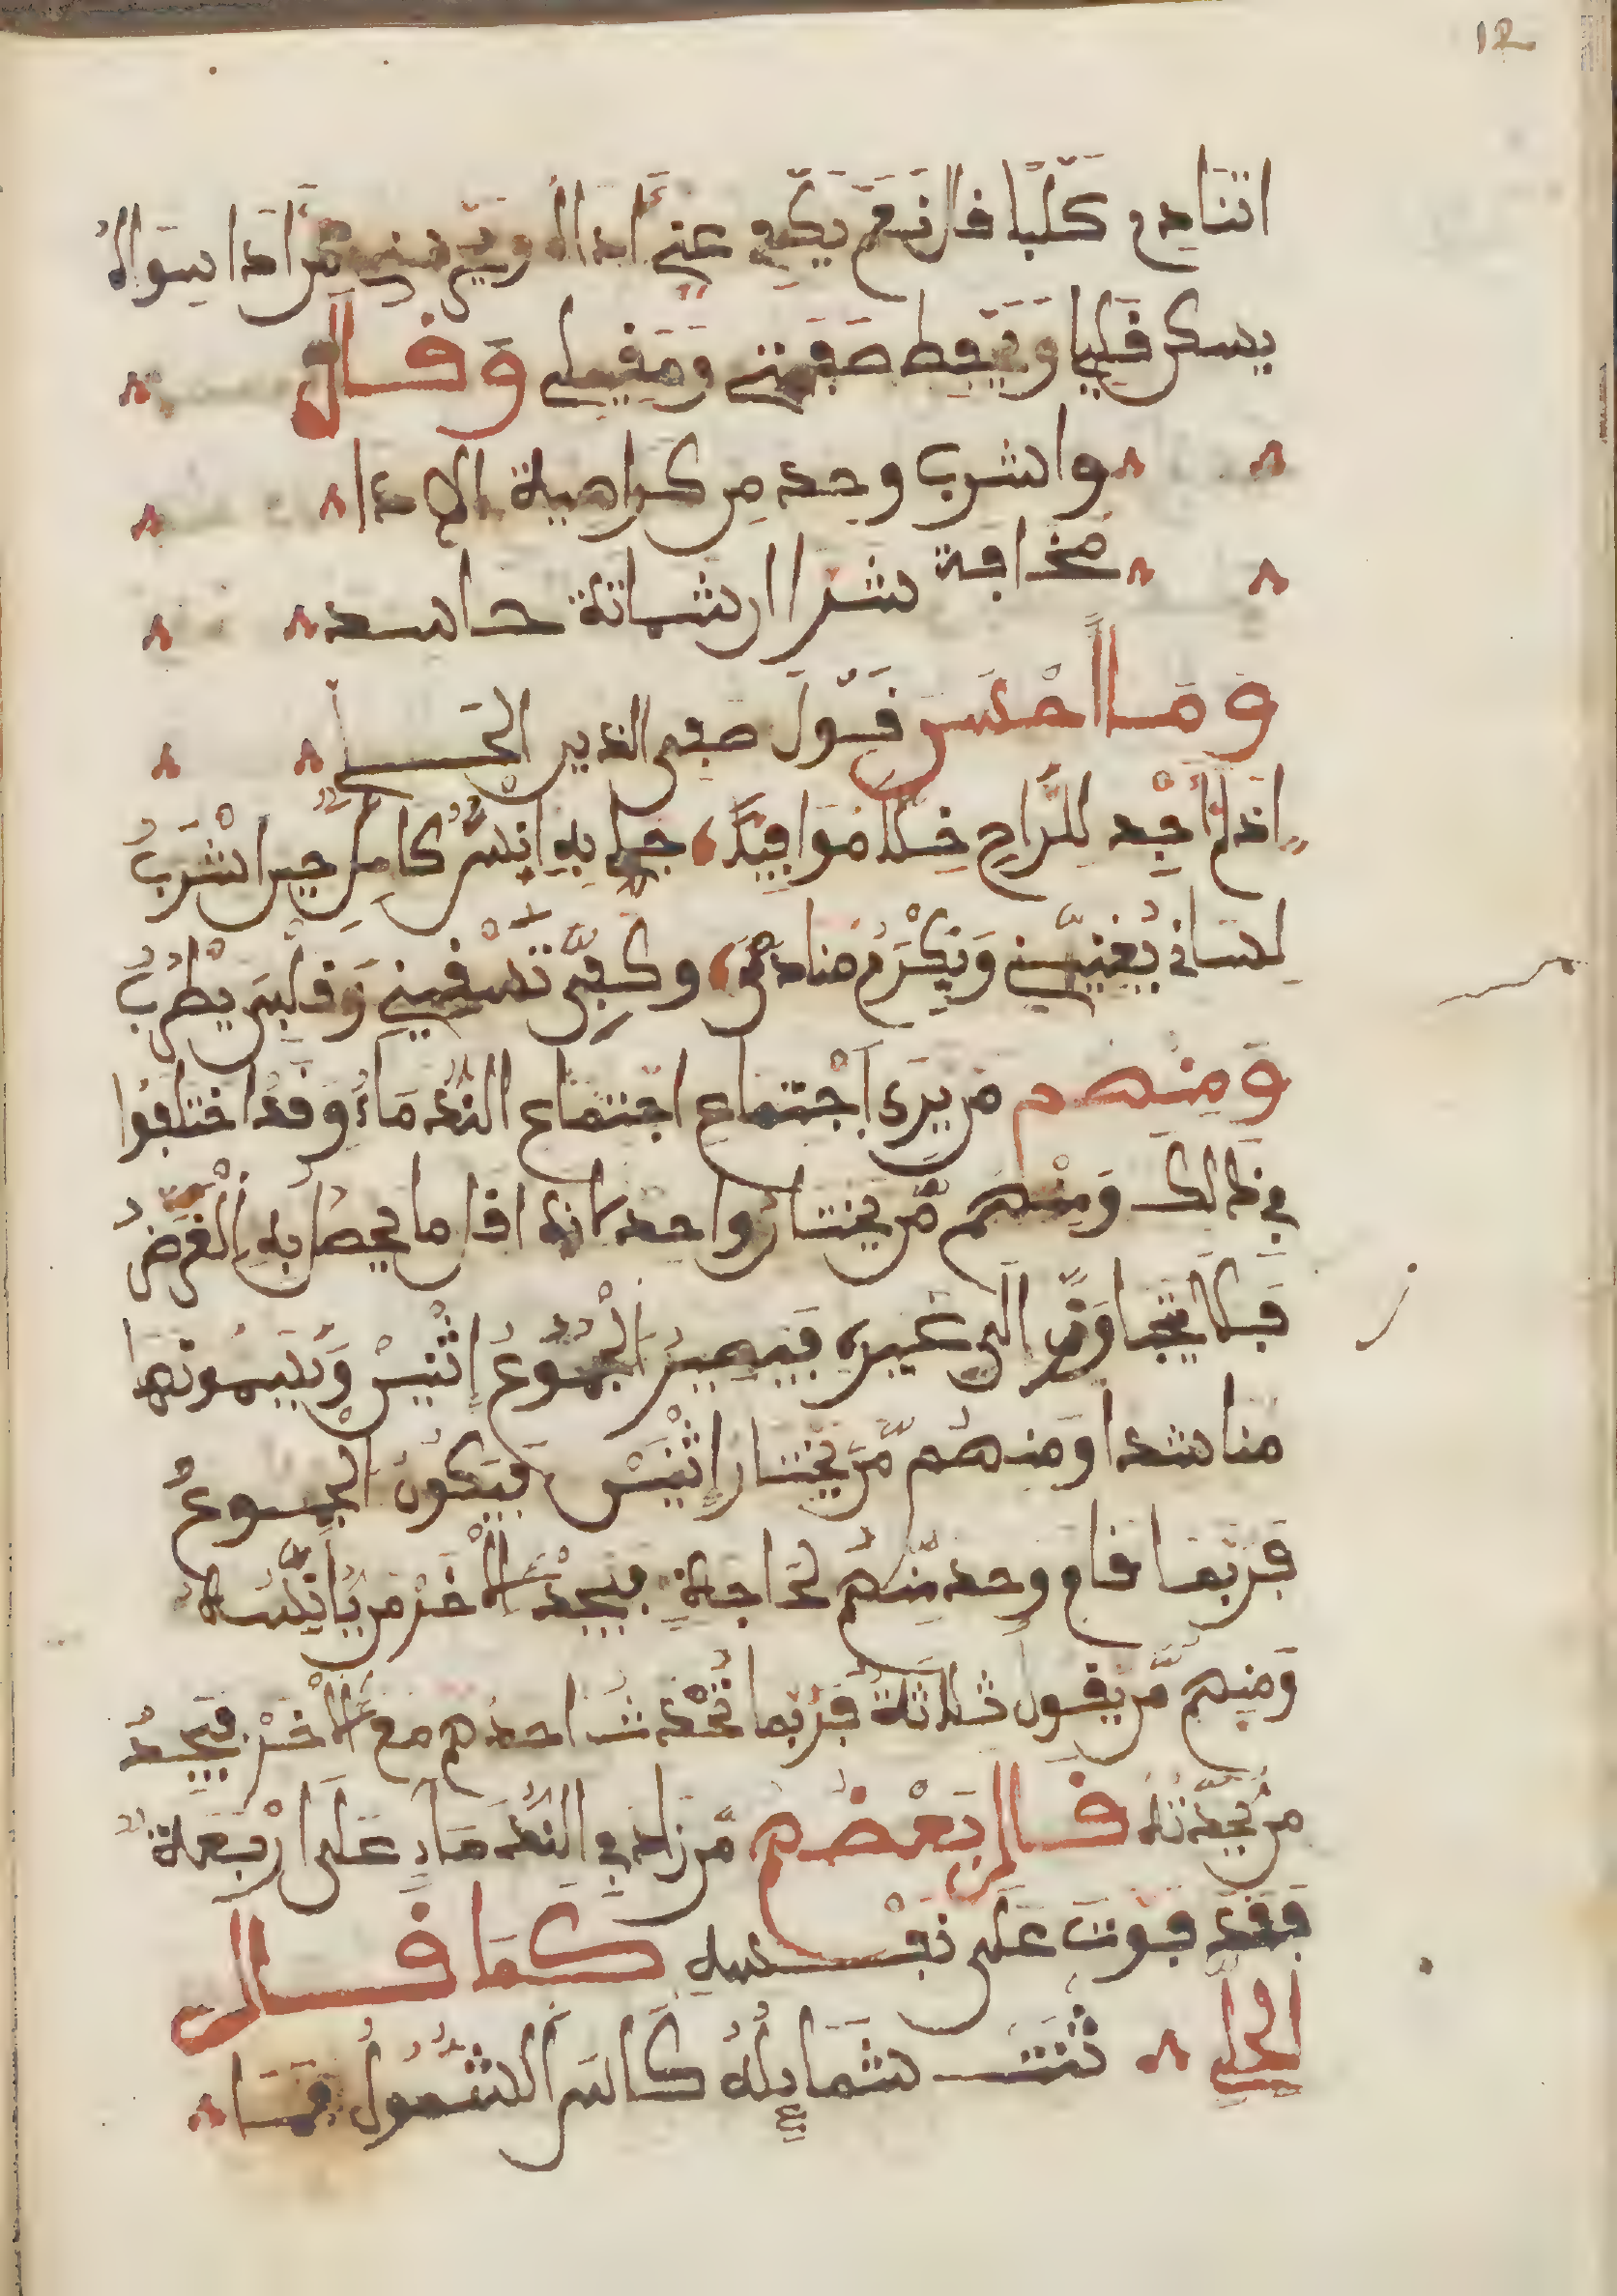 12
اتنادم كلبا قال نعم يكف عني أذاه ويمنعني من أذا سواه
يشكر قليلي ويحفظ مبيتي ومقيلي وقال
واشرب وحدي من كراهية الاذا
مخافة شرا ار شماتة حاسد
وما احسن قول صفي الدين الحلي
اذا لم أجد للراح خلا موافيا، جلي به انس كامل حين اشرب
لساني يغنيني ويكرم منادمي، وكفي تسقيني وقلبي يطرب
ومنهم من يرى اجتماع اجتماع الندماء وقد اختلفوا
في ذالك ومنهم من يختار واحد لانه اذا ما يحصل به الغرض
فلا يتجاوز الى غيره فيصير المجموع اثنين ويسمونها
مناشدا ومنهم من يختار اثنين فيكون المجموع
فربما قام وحد منهم لحاجة فيجد الاخر من يانسه
ومنهم من يقول ثلاثة فربما تحدث احدهم مع الاخر فيجد
من يحدثه قال بعضهم من زاد في الندماء على اربعة
فقد فوت على نفسه كما قال
الحلي ثنت شمايله كاس الشمول فما